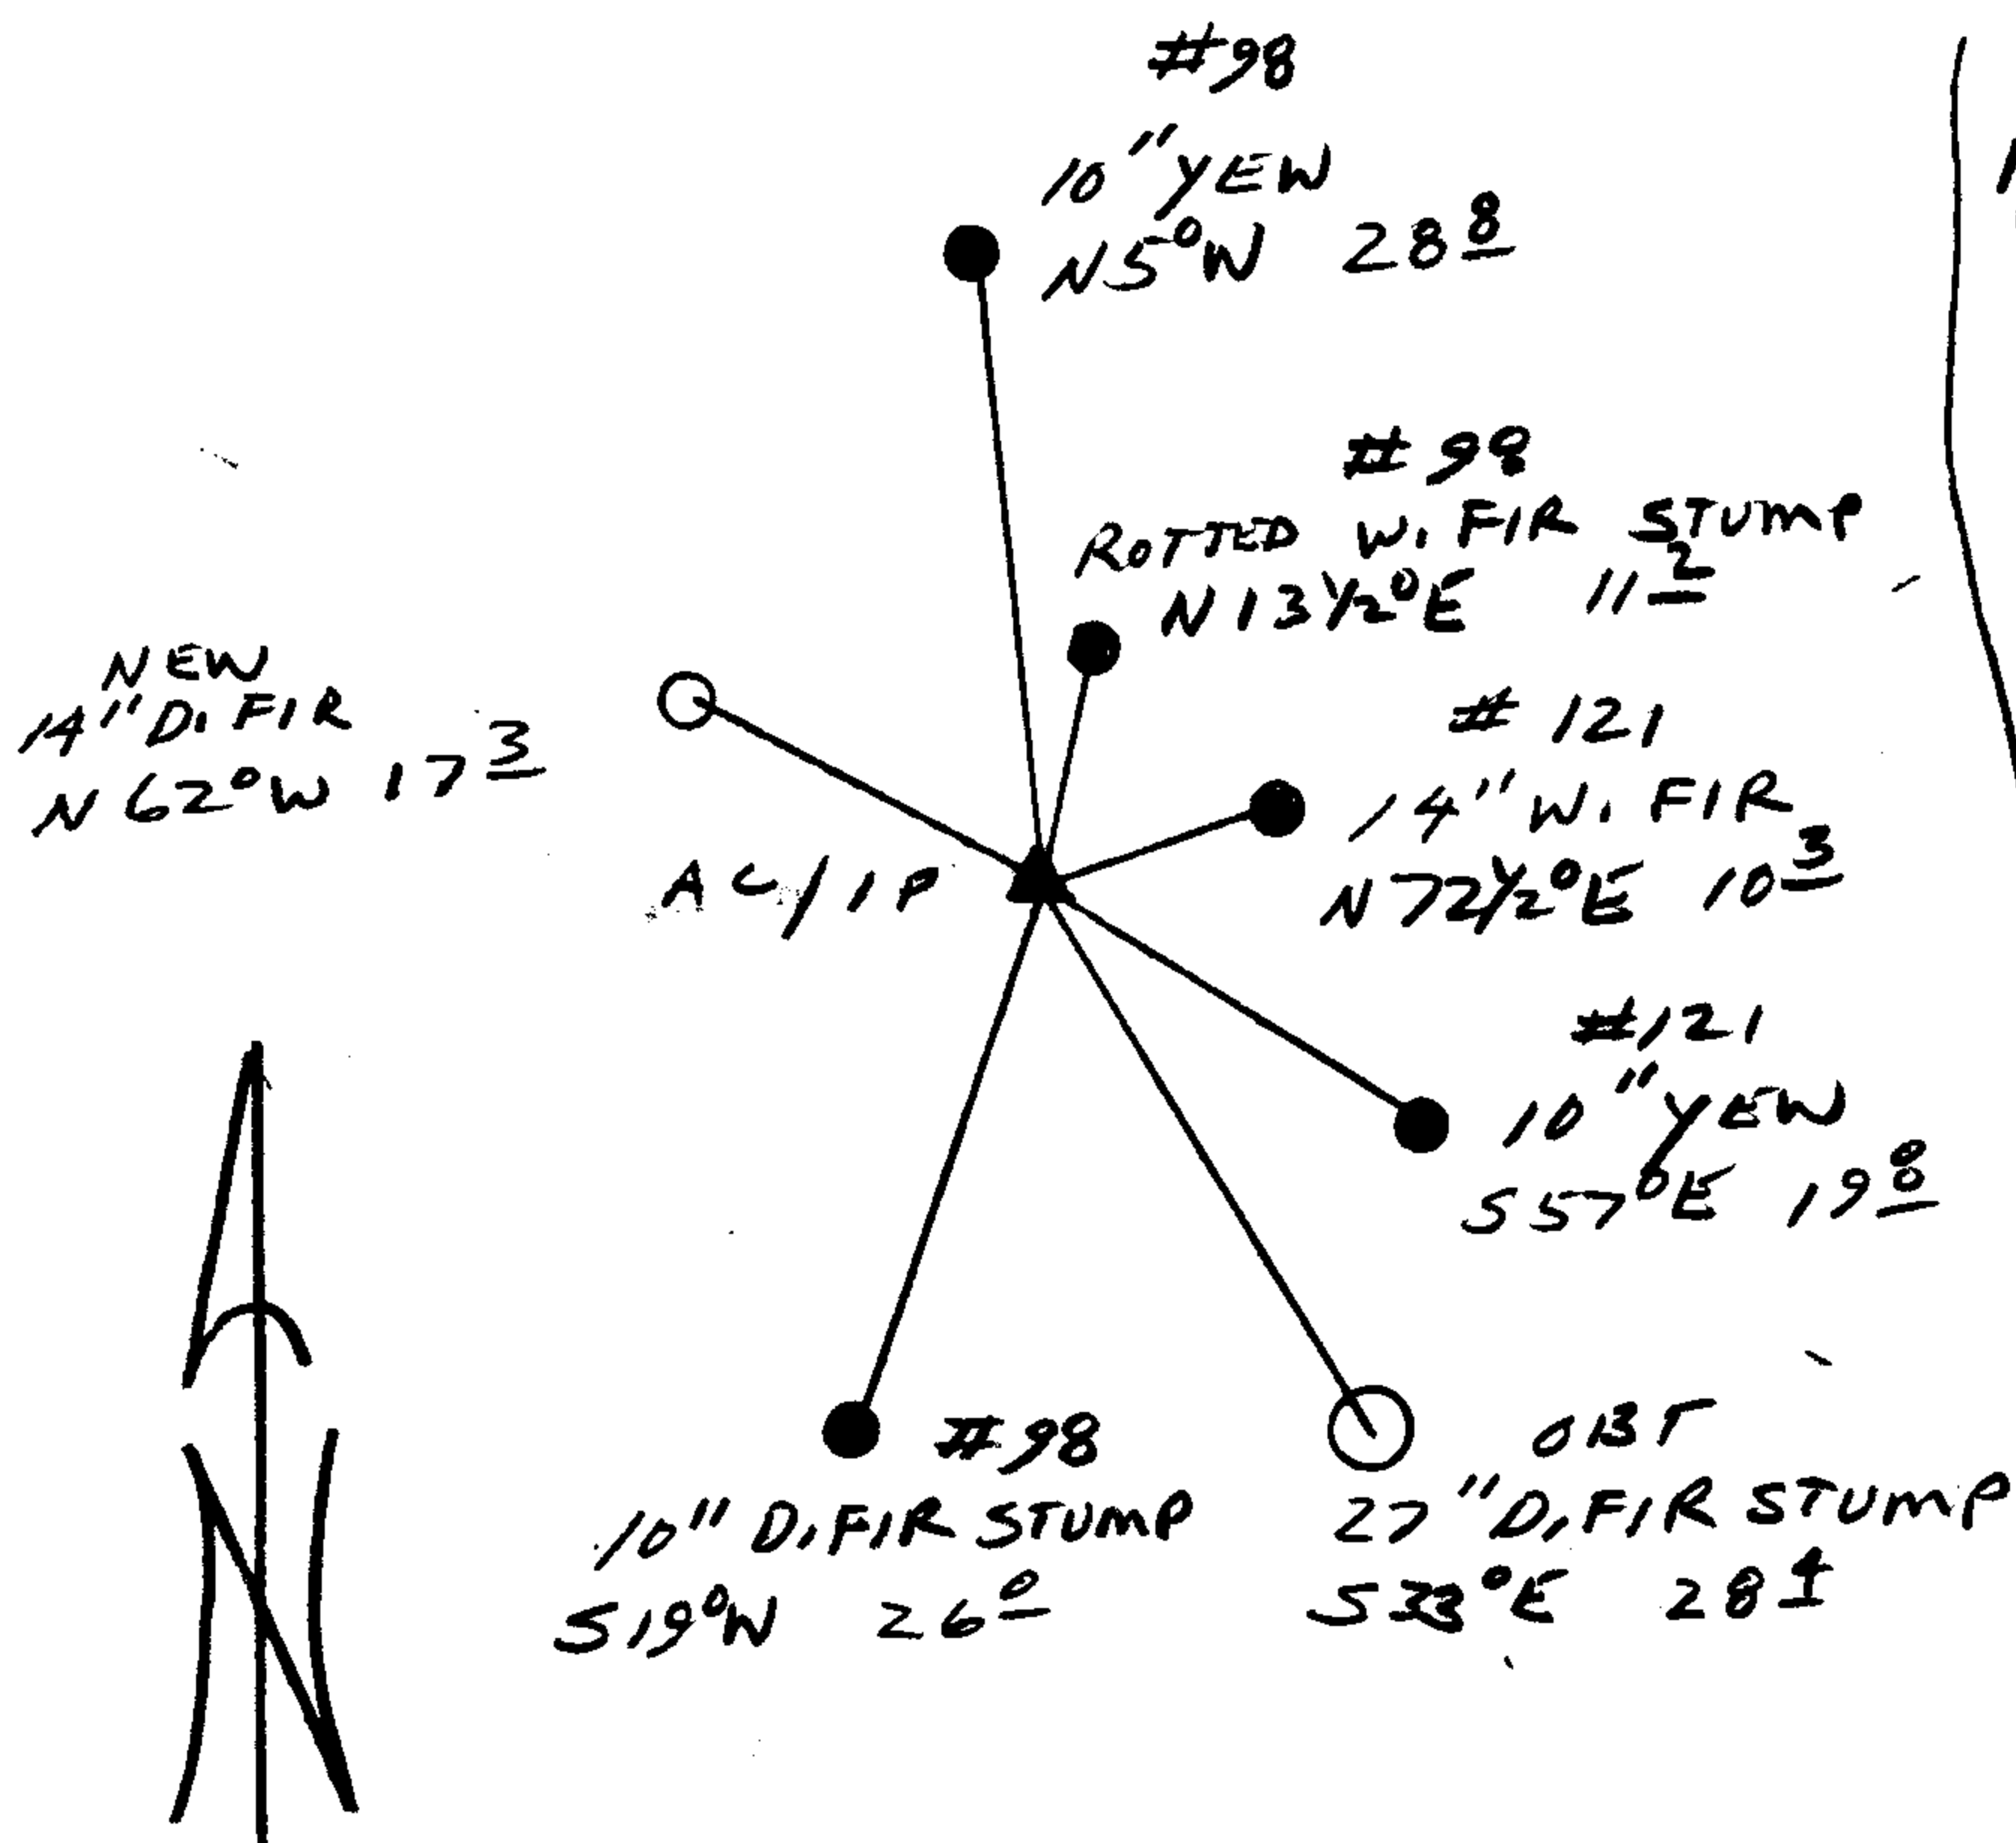 #98
10" YEW
N5°W 28 8
#98
ROTTED W. FIR STUMP
N 13½°E 11 2
NEW
14" D. FIR
N 62°W 17 3
# 121
14" W. FIR
N 72½°E 10 3
AC/IP
#121
10" YEW
S 57°E 19 8
#98
10" D. FIR STUMP
S 19°W 26 0
OBT
27" D. FIR STUMP
S 33°E 28 4
N